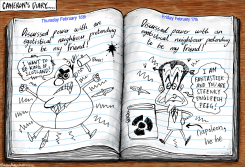 CAMERON'S DIARY....
Thursday February 16th
Discussed power with an
egotistical neighbour pretending
to be my friend!
I WANT TO
BE KING OF
SCOTLAND!
Friday February 17th
Discussed power with an
egotistical neighbour pretending
to be my friend!
I AM
FANTASTEEK
AND YOU ARE
STEENKY
ENGLEESH
PEEG!
Napoleon,
he he